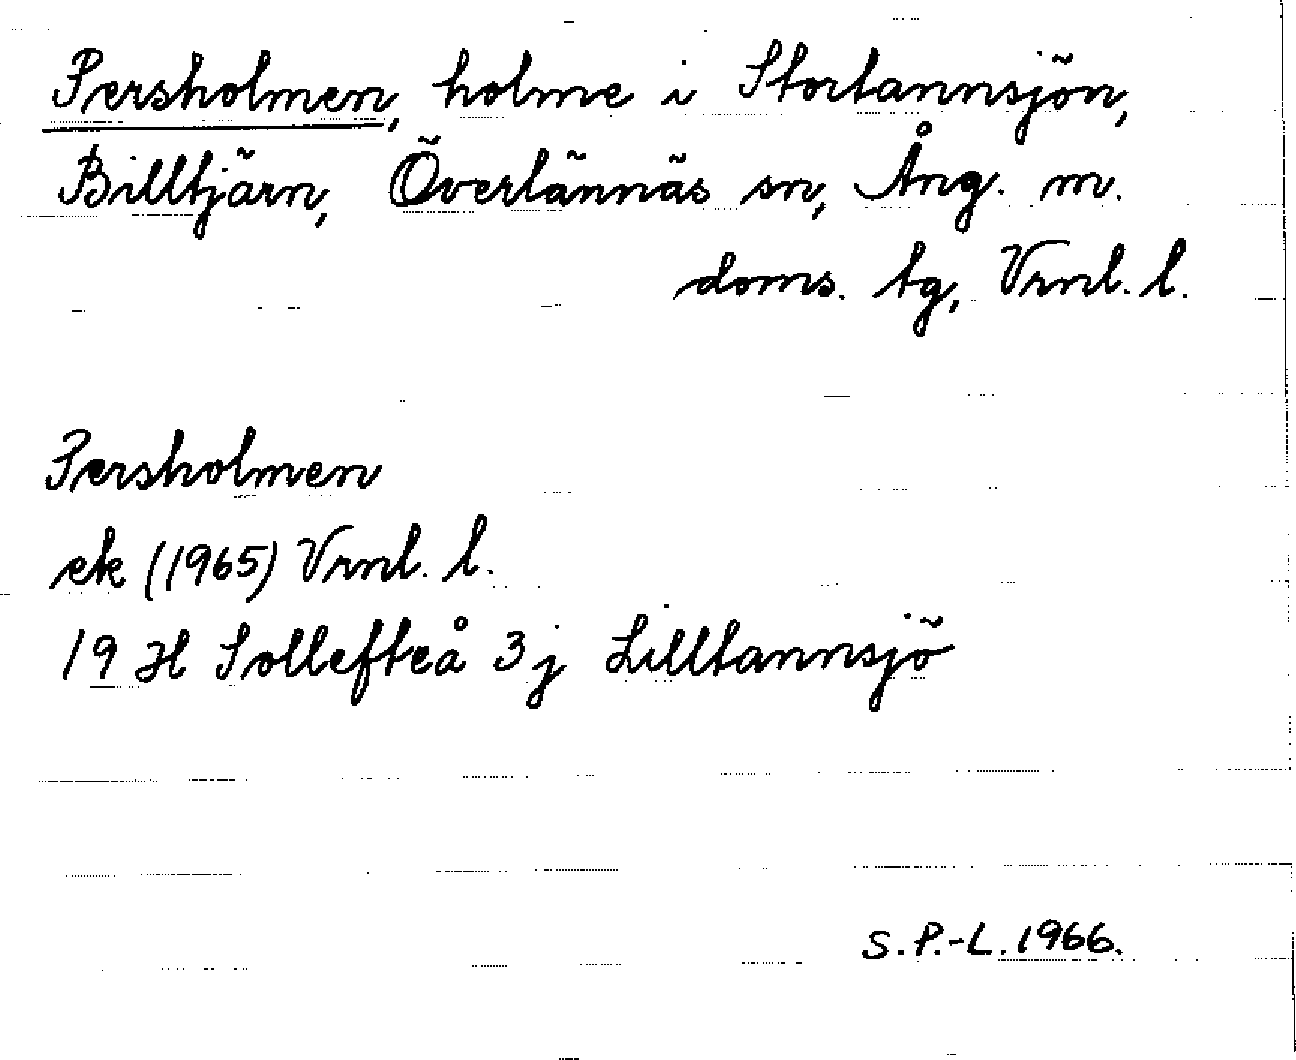 Persholmen, holme i Stortannsjön,
Billtjärn, Överlännäs sn, Ång. m.
doms. tg, Vrnl. l.
Persholmen
ek (1965) Vrnl. l.
19 H Sollefteå 3 j Lilltannsjö
S. P.-L. 1966.